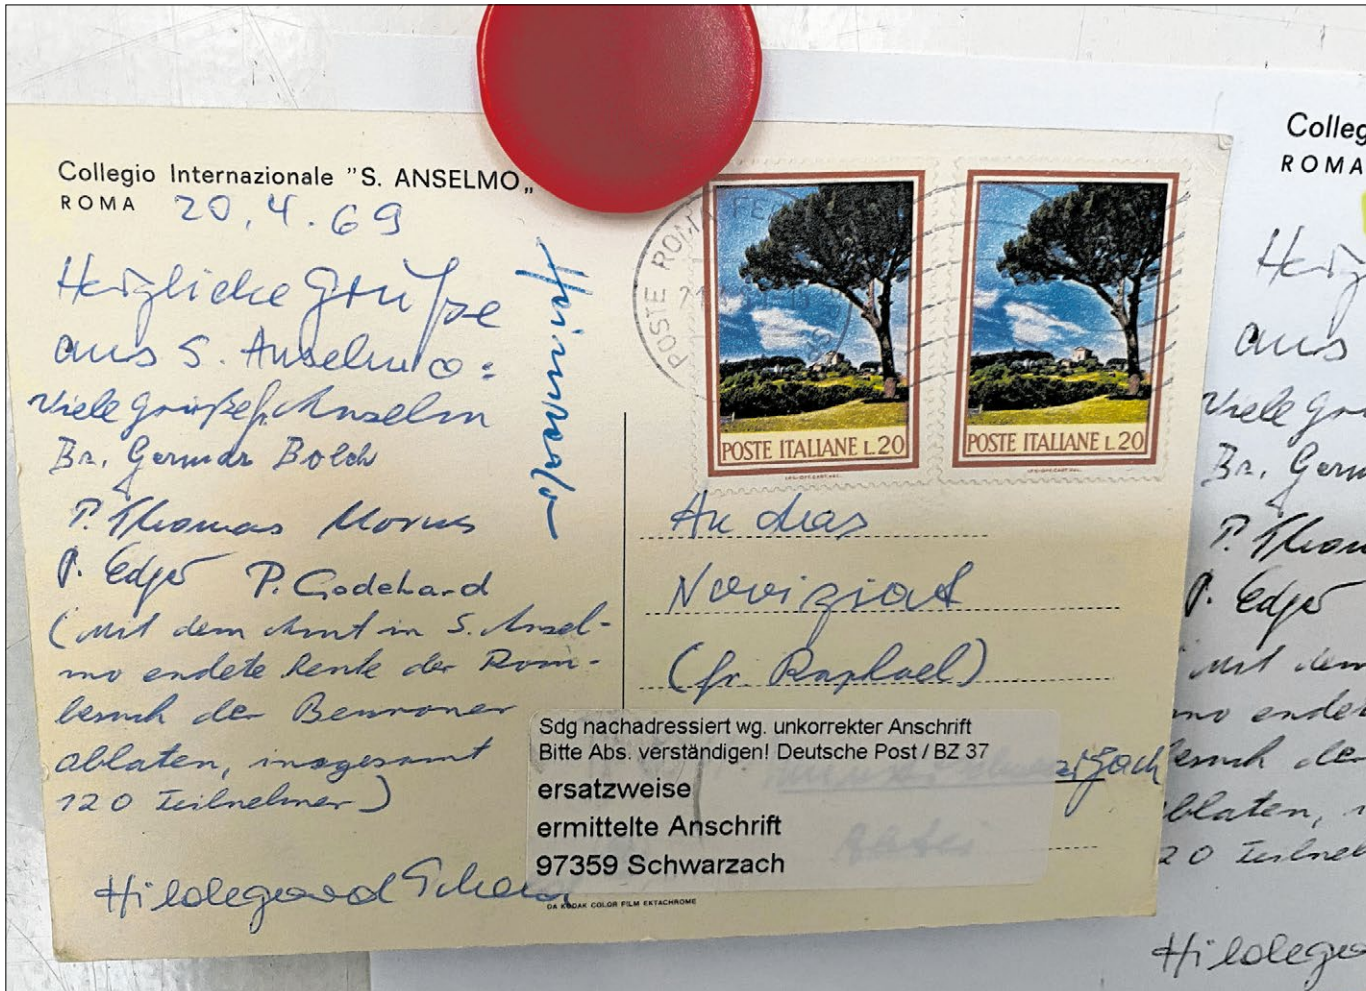 Collegio Internazionale "S. ANSELMO„
ROMA 20.4.69
Herzliche Grüße
aus S. Anselmo:
Viele Grüße fr. Anselm
Br. Germar Bolch
P. Thomas Morus
P. Edgar P. Godehard
(Mit dem Amt in S. Ansel-
mo endete heute der Rom-
besuch der Beuroner
oblaten, insgesamt
120 Teilnehmer)
Hildegard
POSTE ROMA FE
POSTE ITALIANE L.20
POSTE ITALIANE L.20
An das
Noviziat
(fr. Raphael)
Sdg nachadressiert wg. unkorrekter Anschrift
Bitte Abs. verständigen! Deutsche Post / BZ 37
ersatzweise
ermittelte Anschrift
97359 Schwarzach
Abtei
DA KODAK COLOR FILM EKTACHROME
Colleg
ROMA
Herz
aus
Viele Grü
Br. Germ
P. Thom
P. Edgar
Mit dem
mo endet
besuch der
oblaten, i
20 Teilneh
Hildega